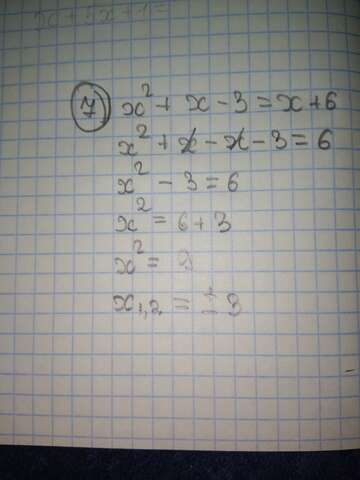 7) x² + x - 3 = x + 6
x² + x - x - 3 = 6
x² - 3 = 6
x² = 6 + 3
x² = 9
x₁,₂ = ± 3